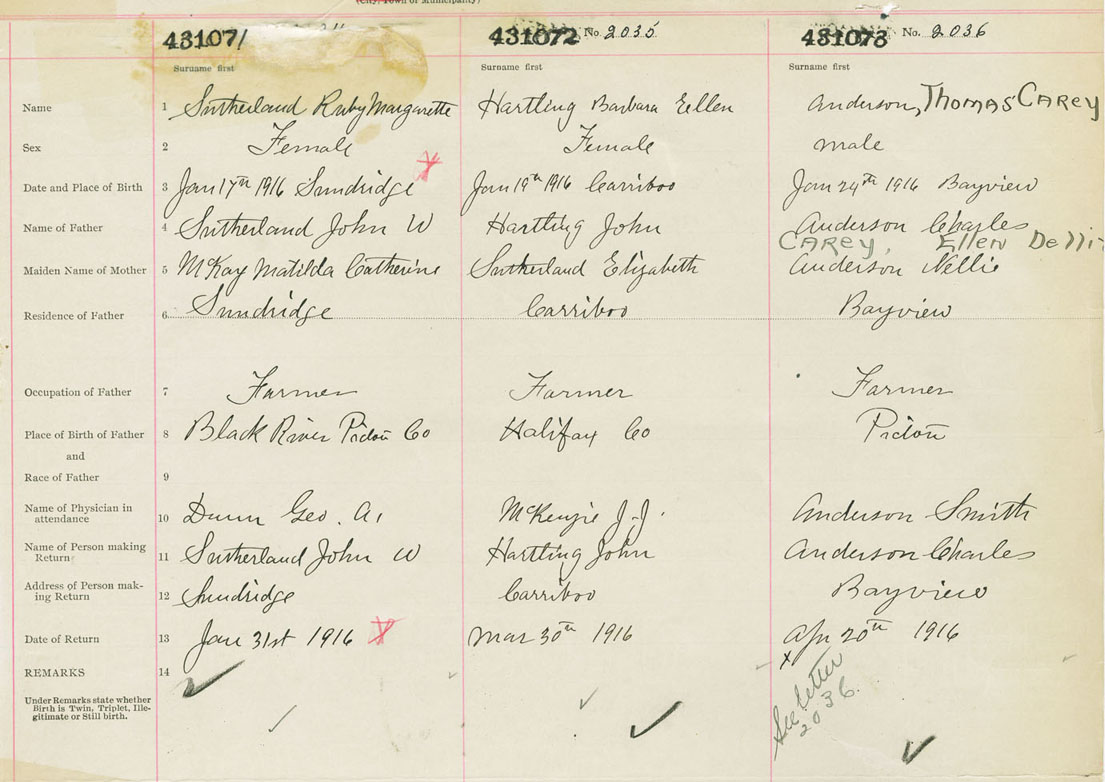 (City, Town or Municipality)
431071
431072 No. 2035
431073 No. 2036
Surname first Surname first Surname first
Name 1 Sutherland Ruby Margarette Hartling Barbara Ellen Anderson, Thomas Carey
Sex 2 Female Female male
Date and Place of Birth 3 Jan 17th 1916 Sundridge Jan 19th 1916 Carriboo Jan 24th 1916 Bayview
Name of Father 4 Sutherland John W Hartling John Anderson Charles
CAREY, Ellen
Maiden Name of Mother 5 McKay Matilda Catherine Sutherland Elizabeth Anderson Nellie
Residence of Father 6 Sundridge Carriboo Bayview
Occupation of Father 7 Farmer Farmer Farmer
Place of Birth of Father 8 Black River Pictou Co Halifax Co Pictou
and
Race of Father 9
Name of Physician in attendance 10 Dunn Geo. A. McKenzie J.J. Anderson Smith
Name of Person making Return 11 Sutherland John W Hartling John Anderson Charles
Address of Person mak-ing Return 12 Sundridge Carriboo Bayview
Date of Return 13 Jan 31st 1916 X Mar 30th 1916 Apr 20th 1916
REMARKS 14
x See letter
2036
Under Remarks state whether
Birth is Twin, Triplet, Ille-
gitimate or Still birth.